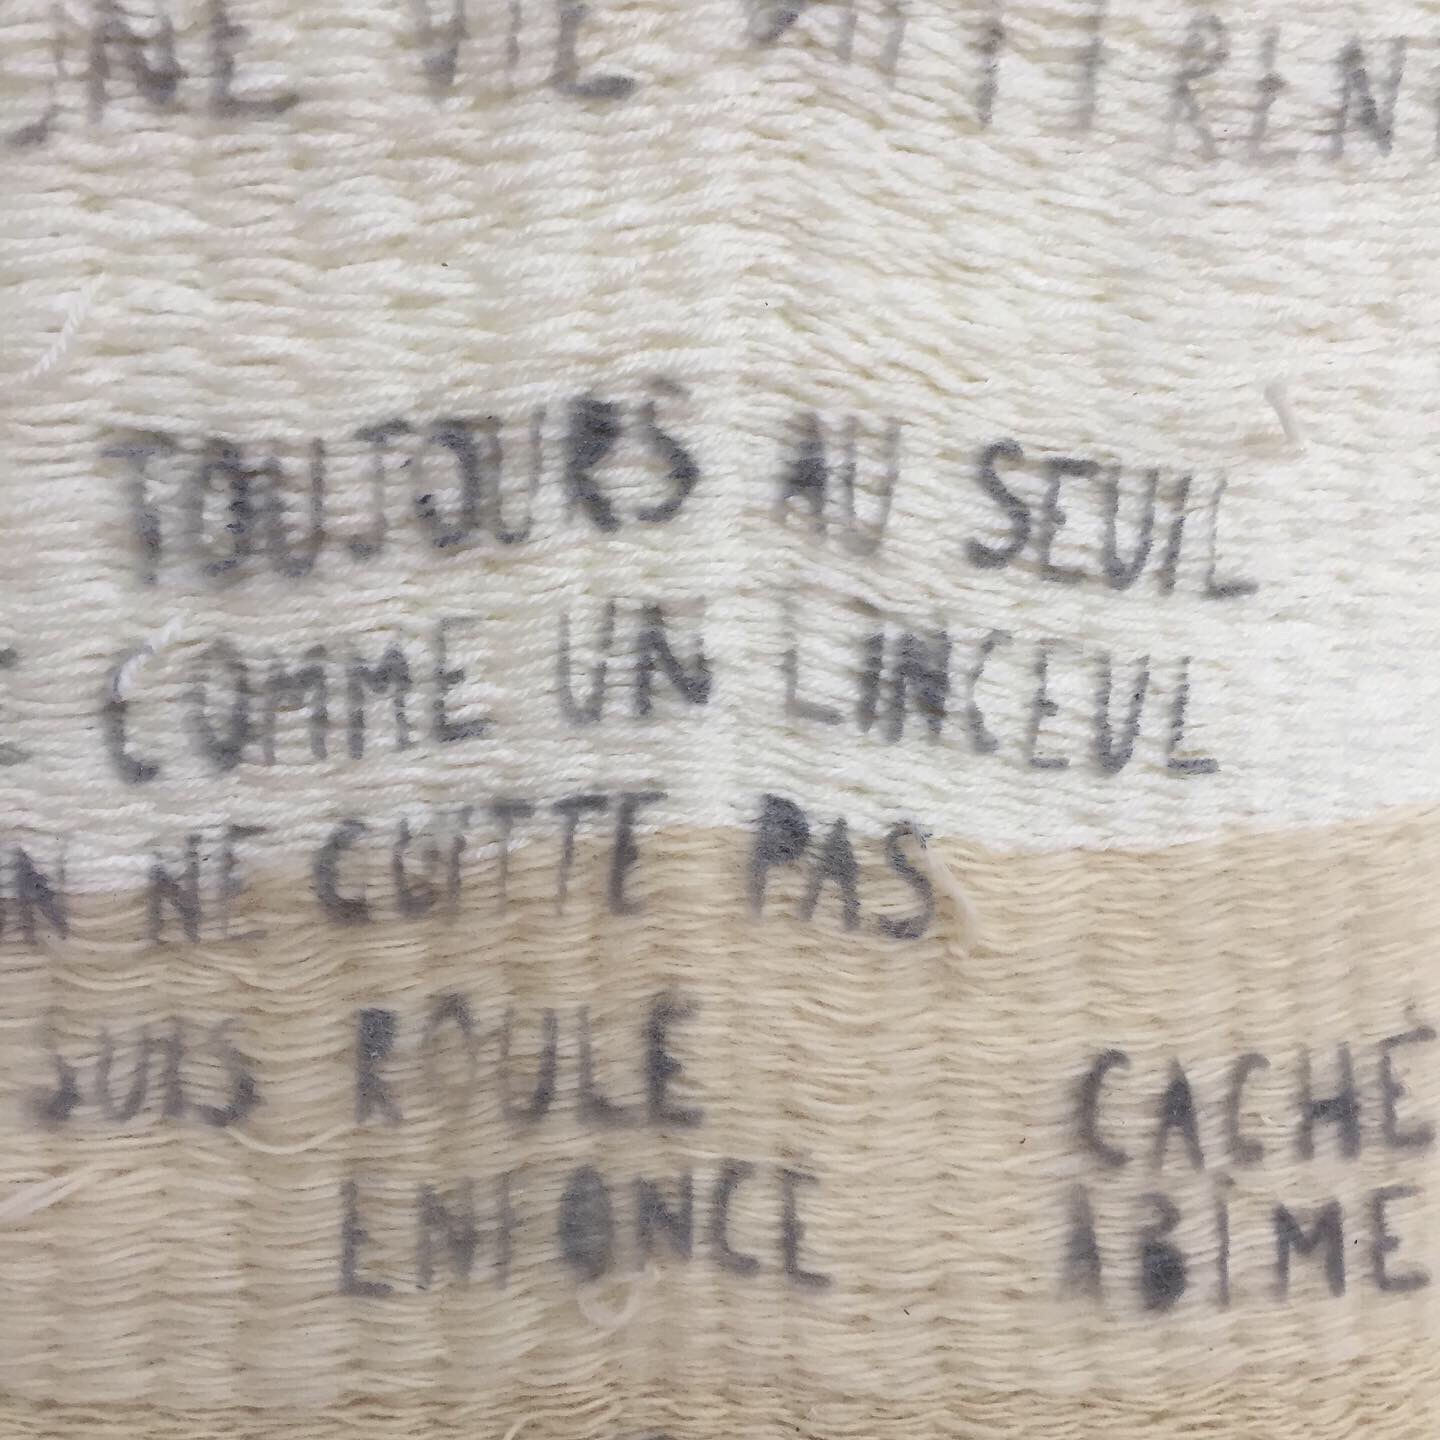 UNE VIE
TOUJOURS AU SEUIL
COMME UN LINCEUL
ON NE QUITTE PAS
SUIS ROULÉ CACHÉ
ENFONCÉ ABIME